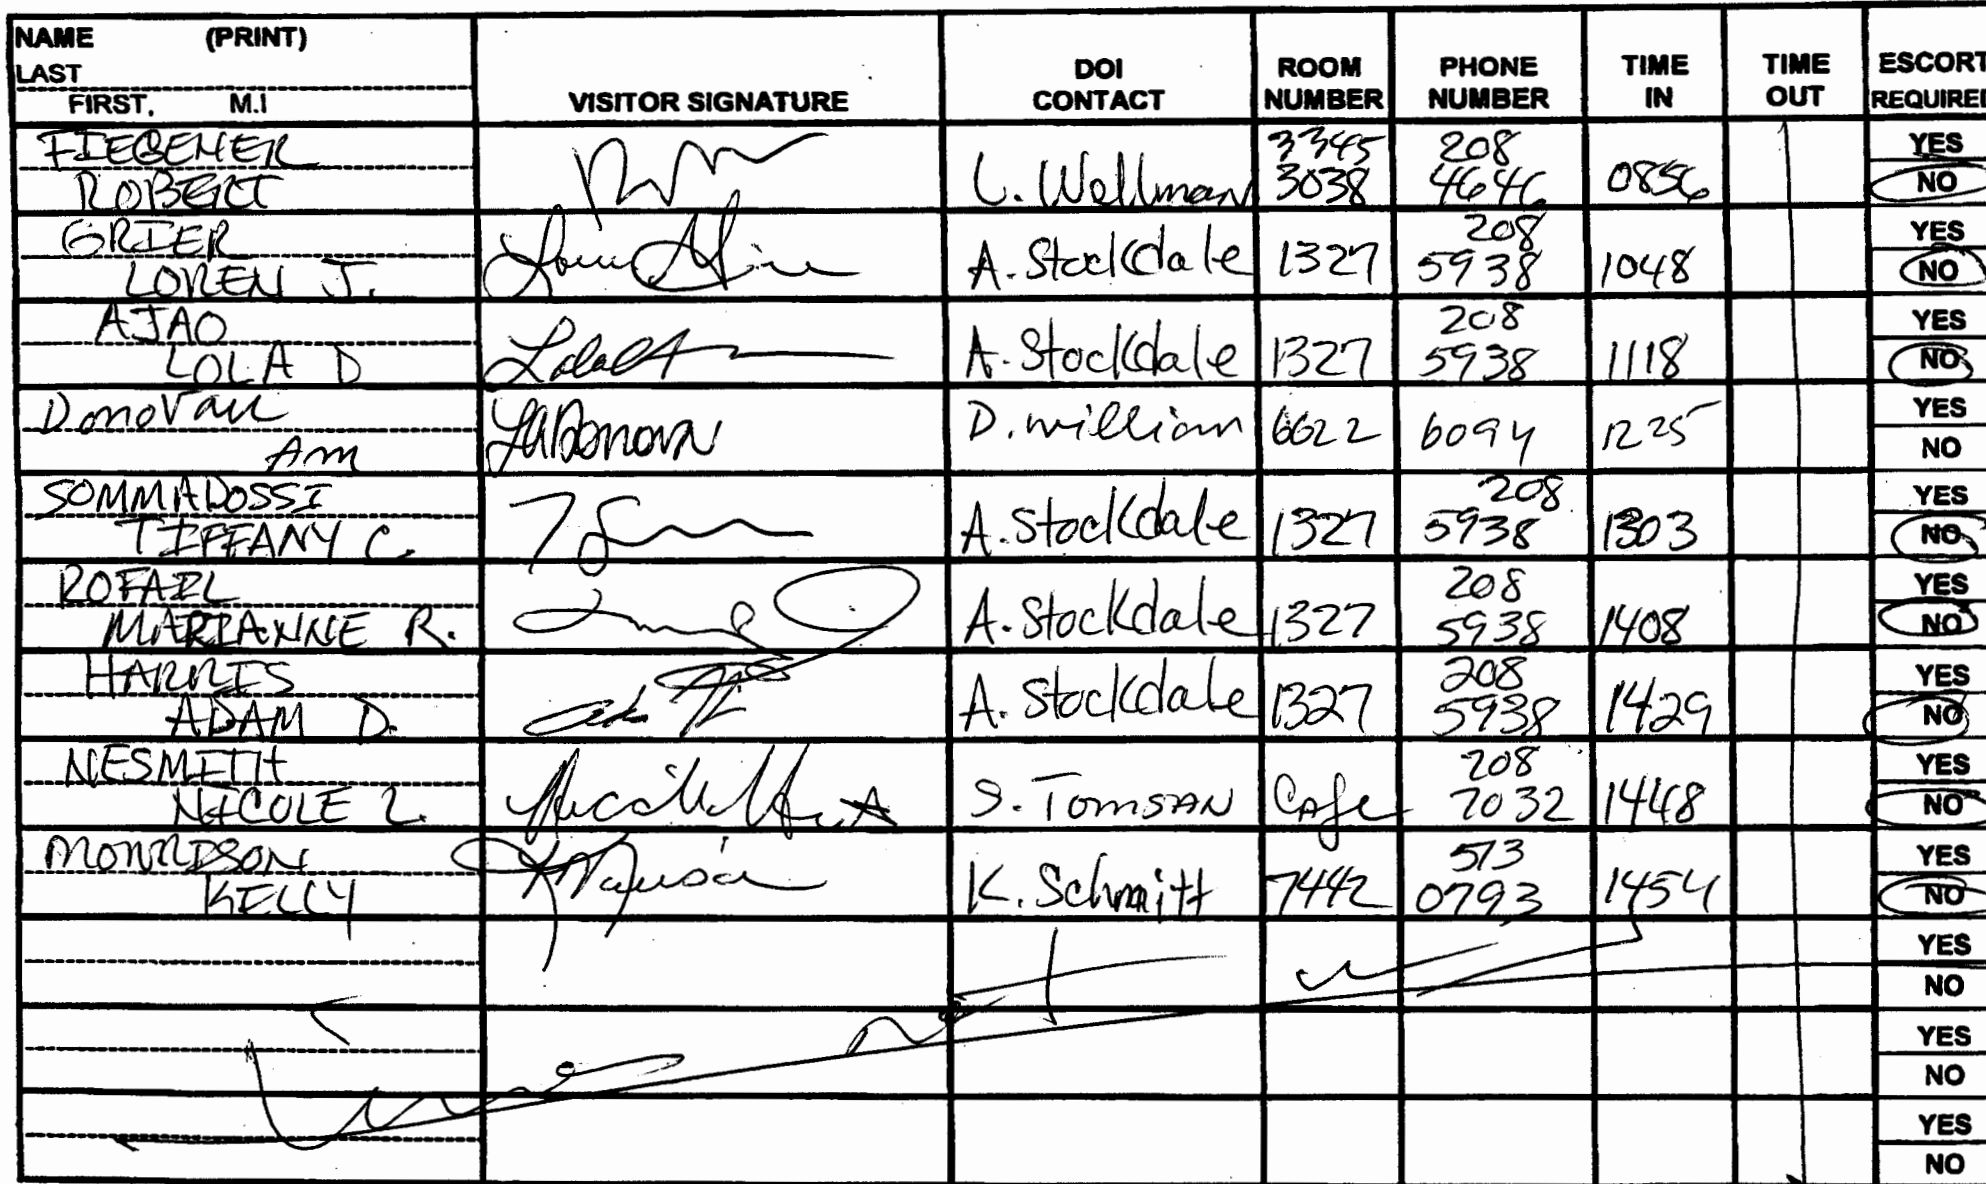 NAME (PRINT)
LAST
FIRST, M.I
VISITOR SIGNATURE
DOI
CONTACT
ROOM
NUMBER
PHONE
NUMBER
TIME
IN
TIME
OUT
ESCORT
REQUIRED
FIEGENER
ROBERT
L. Wellman
3345
3038
208
4646
0856
YES
NO
GRIER
LOREN J.
A. Stockdale
1327
208
5938
1048
YES
NO
AJAO
LOLA D
A. Stockdale
1327
208
5938
1118
YES
NO
Donovan
Am
D. william
6622
6094
1225
YES
NO
SOMMADOSSI
TIFFANY C.
A. Stockdale
1327
208
5938
1303
YES
NO
ROFAIL
MARIANNE R.
A. Stockdale
1327
208
5938
1408
YES
NO
HARRIS
ADAM D.
A. Stockdale
1327
208
5938
1429
YES
NO
NESMITH
NICOLE L.
S. TOMSAN
Cafe
208
7032
1448
YES
NO
MORRISON
KELLY
K. Schmitt
7442
513
0793
1454
YES
NO
YES
NO
YES
NO
YES
NO